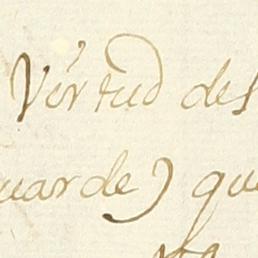 Virtud des
uarde) que